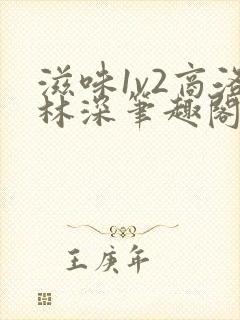 滋味1v2高洛
林深笔趣阁
王庚年